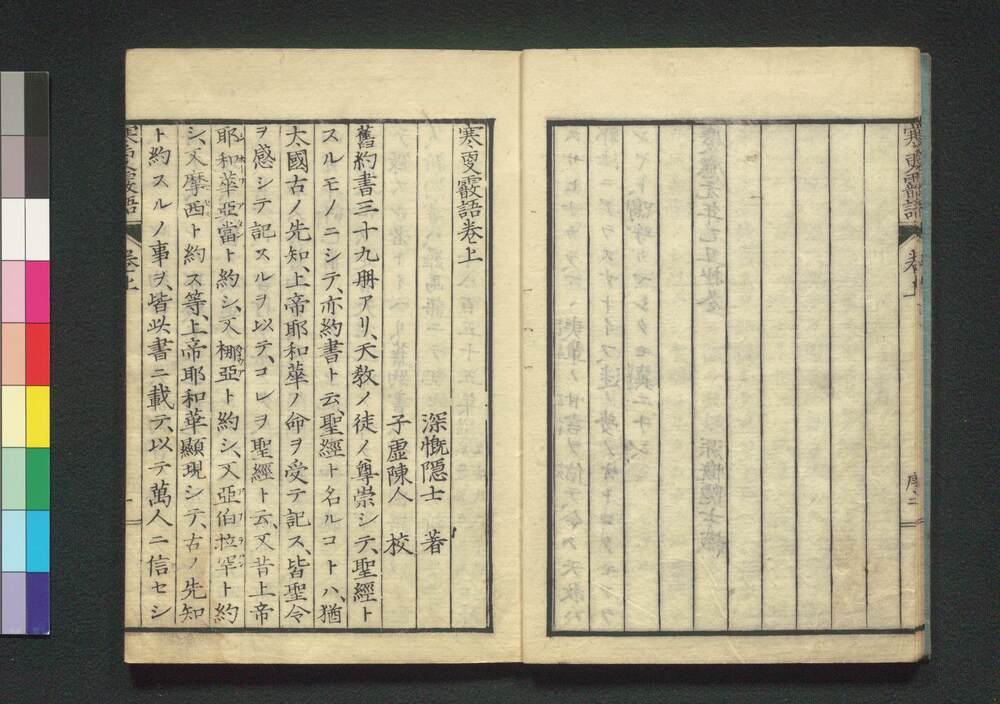 序二
寒更霰語卷上
深慨隱士　著
子虛陳人　校
舊約書三十九册アリ、天教ノ徒ノ尊崇シテ、聖經ト
スルモノニシテ、亦約書ト云、聖經ト名ルコトハ、猶
太國古ノ先知、上帝耶和華ノ命ヲ受テ記ス、皆聖令
ヲ感シテ記スルヲ以テ、コレヲ聖經ト云、又昔上帝
耶和華亞當ト約シ、又梛亞ト約シ、又亞伯拉罕ト約
シ、又摩西ト約ス等、上帝耶和華顯現シテ、古ノ先知
ト約スルノ事ヲ、皆此書ニ載テ、以テ萬人ニ信セシ
寒更霰語
卷上
一